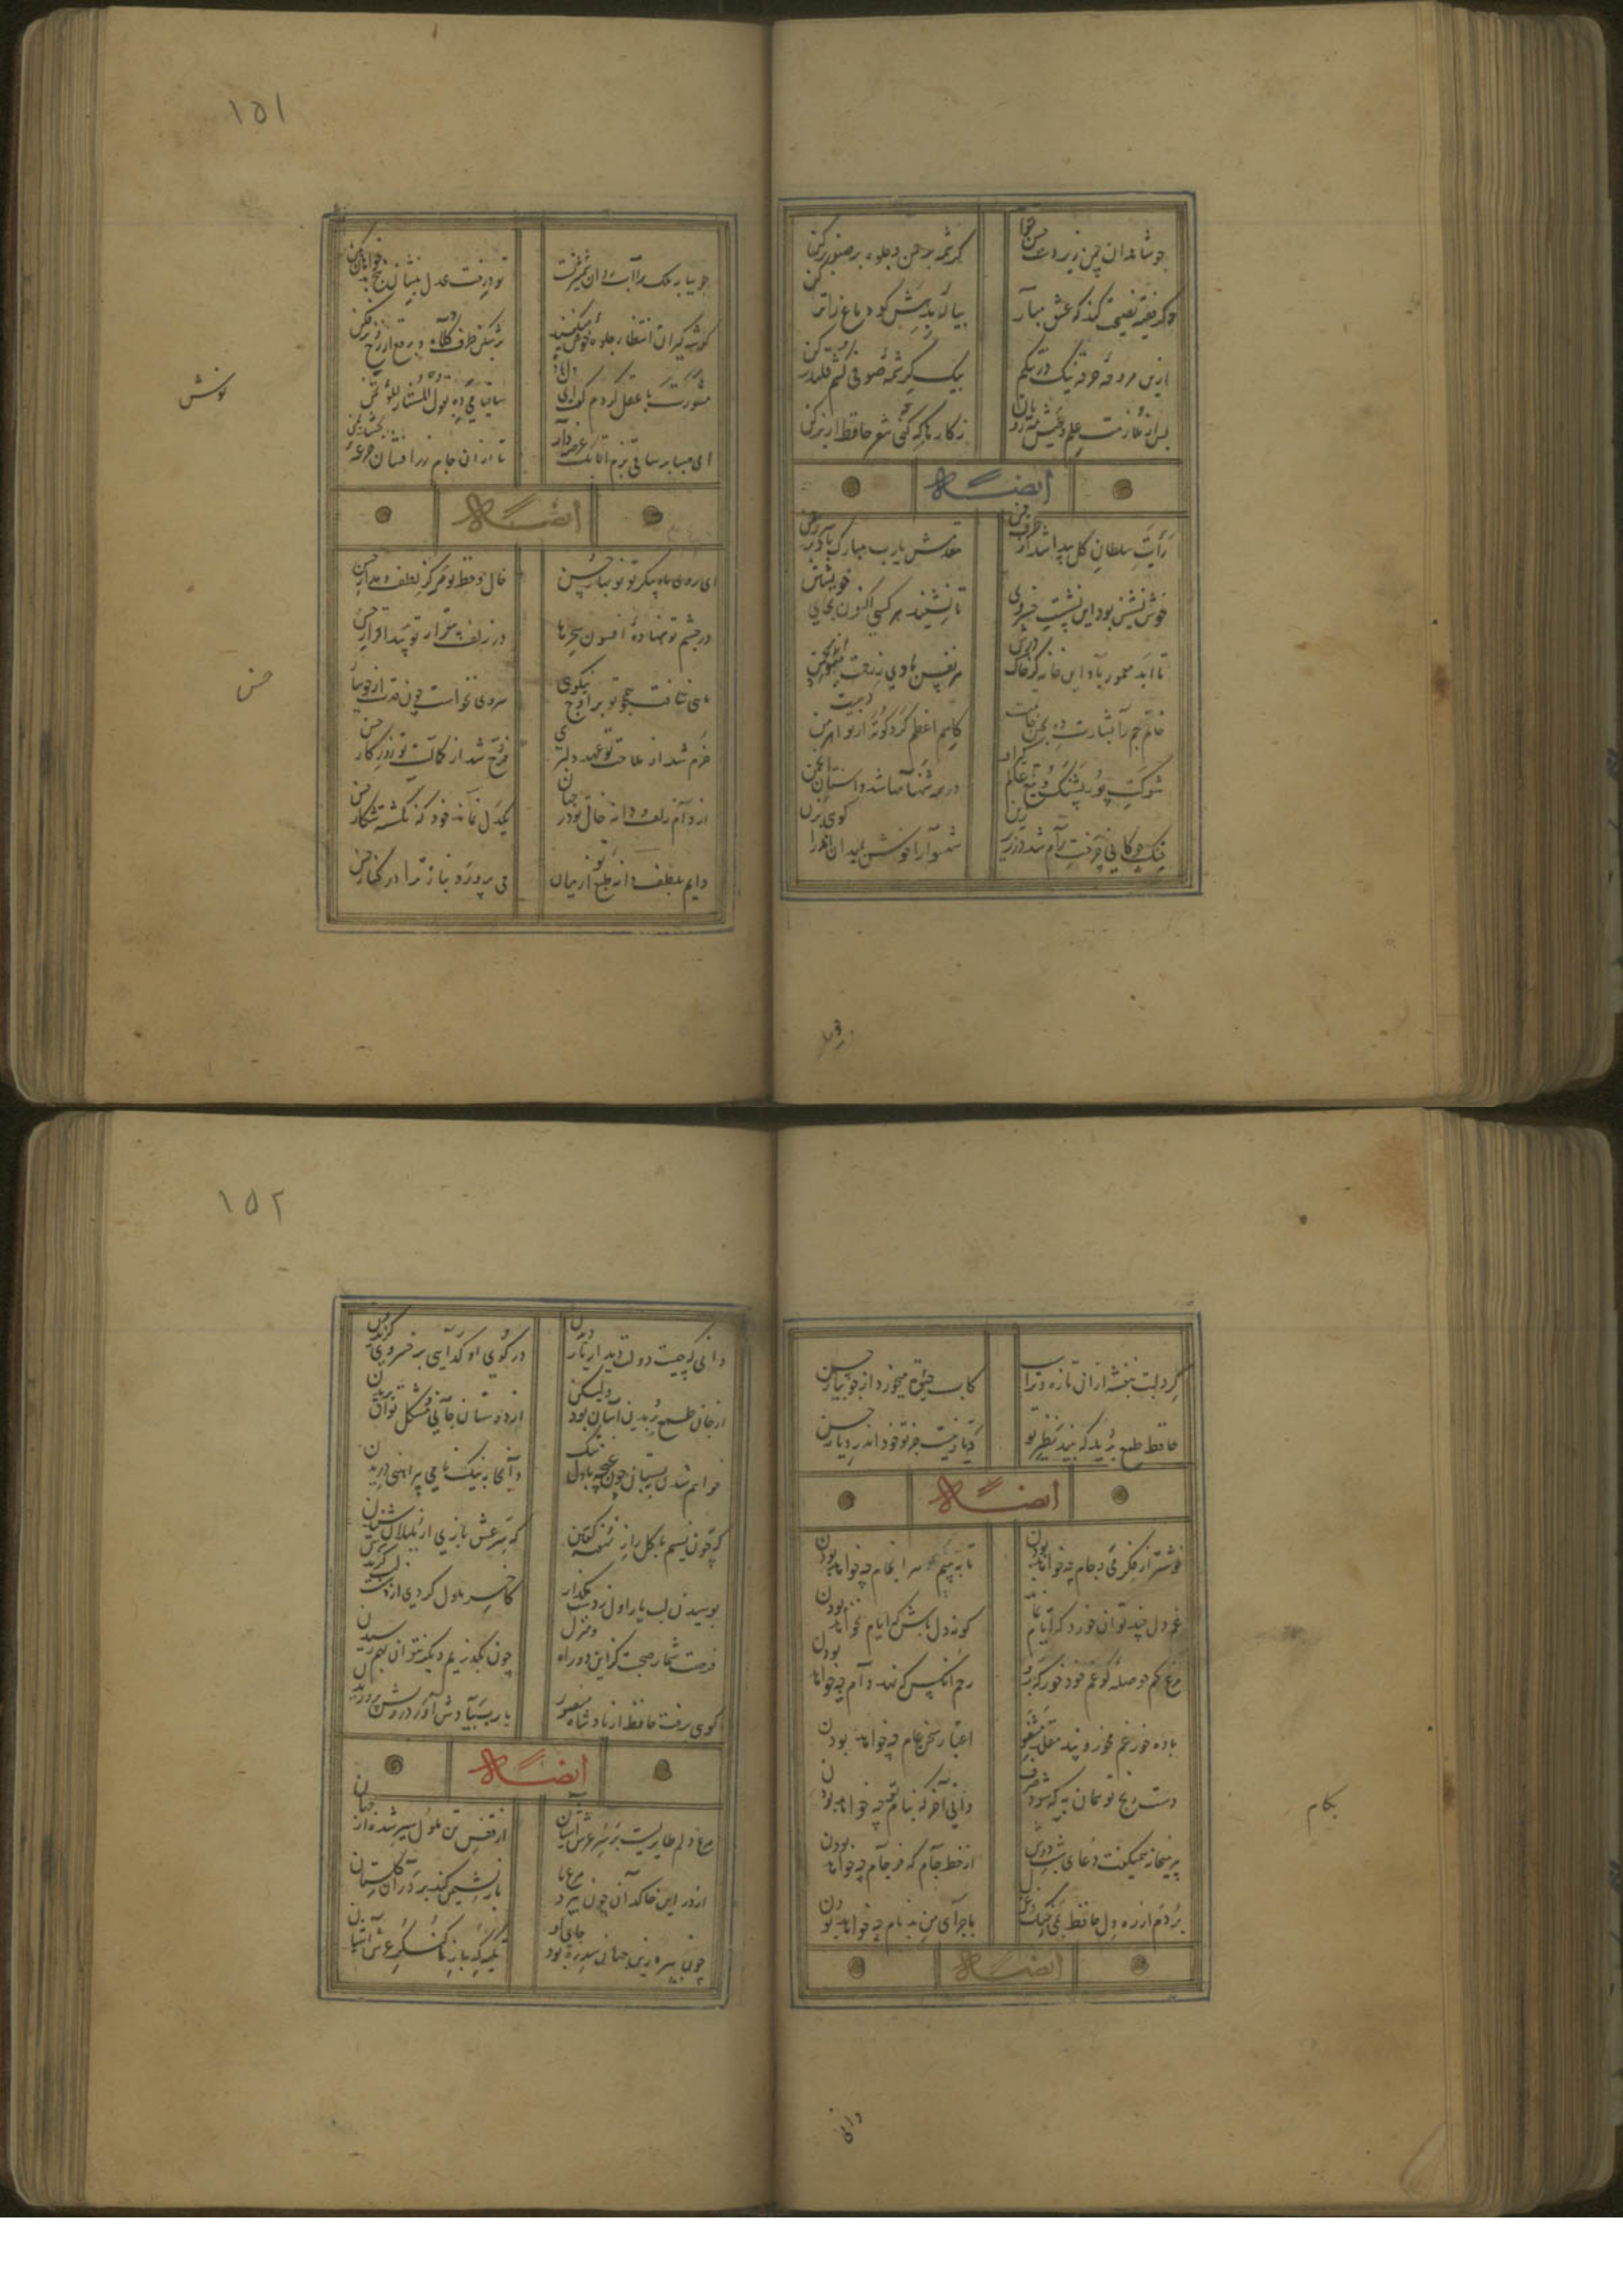 چو شاهدان چمن زیر دست حسن تواند
کرشمه بر سمن و جلوه بر صنوبر کن
وگر فقیه نصیحت کند که عشق مباز
پیاله بدهش گو دماغ را تر کن
ازین مزوجه خرقه نیک در تنگم
بیک کرشمه صوفی کشم قلندر کن
پس از ملازمت عیش و عشق مه رویان
ز کارها که کنی شعر حافظ از بر کن
ایضاً له
رایت سلطان گل پیدا شد از طرف چمن
مقدمش یارب مبارک باد بر سرو و سمن
خوش نشین بود این نشست خسروی
تا نشیند هر کسی اکنون بجای خویشتن
تا ابد معمور باد این خانه کز خاک درش
هر نفس با بوی رحمت
خاتم جم را بشارت ده بحسن خاتمت
کاسم اعظم کرد کوته ازو دست اهرمن
شوکت پور پشنگ و تیغ عالم گیر او
در همه شهنامها شد داستان انجمن
خنگ چوگانی چرخت رام شد در زیر زین
شهسوارا خوش بمیدان آمدی گوی بزن
جو
۱۵۱
جویبار ملک را آب روان شمشیر تست
تو درخت عدل بنشان بیخ بدخواهان بکن
گوشه گیران انتظار جلوه خوش میکنند
برشکن طرف کلاه و برقع از رخ برفکن
مشورت با عقل کردم گفت ای
ساقیا می ده بقول المستشار مؤتمن
نوش
ای صبا بر ساقی بزم اتابک عرضه دار
تا از آن جام زرافشان جرعه بخشد بمن
ایضاً له
ای روی ماه پیکر تو نوبهار حسن
خال و خط تو مرکز لطف و مدار حسن
در چشم تو نهاده افسون سحرها
در زلف بیقرار تو پیدا قرار حسن
حسن
ماهی نتافت همچو تو بر اوج نیکوی
سروی نخواست چون قدت از جویبار
خرم شد از ملاحت تو عهد دلبری
فرخ شد از کمالت تو روزگار حسن
از دام زلف و دانه خال تو در جهان
یکدل نماند خود که نگشته شکار حسن
دایم بلطف دایه طبع از میان
می پرورد بناز ترا در کنار حسن
گرد لبت بنفشه از آنی تازه و تر
کاب حیوة میخورد از جویبار حسن
حافظ طمع برید که بیند نظیر تو
دیار نیست جز تو خود اندر دیار حسن
ایضاً له
خوشتر از فکر می و جام چه خواهد بودن
تا به بینیم سرانجام چه خواهد بودن
غم دل چند توان خورد که ایام نماند
گو نه دل باش نه ایام چه خواهد بودن
مرغ کم حوصله گو غم خود خور که برو
رحم آنکس که نهد دام چه خواهد بودن
باده خور غم مخور و پند مقلد مشنو
اعتبار سخن عام چه خواهد بودن
دست رنج تو همان به که شود صرف
دانی آخر که بناکام چه خواهد بودن
بکام
پیر میخانه همیگفت دعای شب دوش
از خط جام که فرجام چه خواهد بودن
بردم از ره دل حافظ
با جزای من بد نام چه خواهد بودن
ایضاً له
دانی
۱۵۲
دانی که چیست دولت دیدار یار دیدن
در کوی او گدایی بر خسروی گزیدن
از جان طمع بریدن آسان بود ولیکن
از دوستان جانی مشکل توان بریدن
خواهم شدن ببستان چون غنچه با دل تنگ
وآنجا به نیک نامی پیراهنی دریدن
گه چون نسیم با گل راز نهفته گفتن
گه سر عشق بازی از بلبلان شنیدن
بوسیدن لب یار اول ز دست مگذار
کاخر ملول گردی از دست و لب گزیدن
فرصت شمار صحبت کز این دو راه منزل
چون بگذریم دیگر نتوان بهم رسیدن
گوی برفت حافظ از یاد شاه منصور
یارب بیادش آور درویش پروریدن
ایضاً له
مرغ دلم طایریست برتر عرش آشیان
از قفس تن ملول سیر شده از جهان
از در این خاکدان چون بپرد مرغ ما
باز نشیمن کند بر در آن گلستان
چون بپرد زین جهان سدره بود جای او
تکیه گه باز ما کنگره عرش